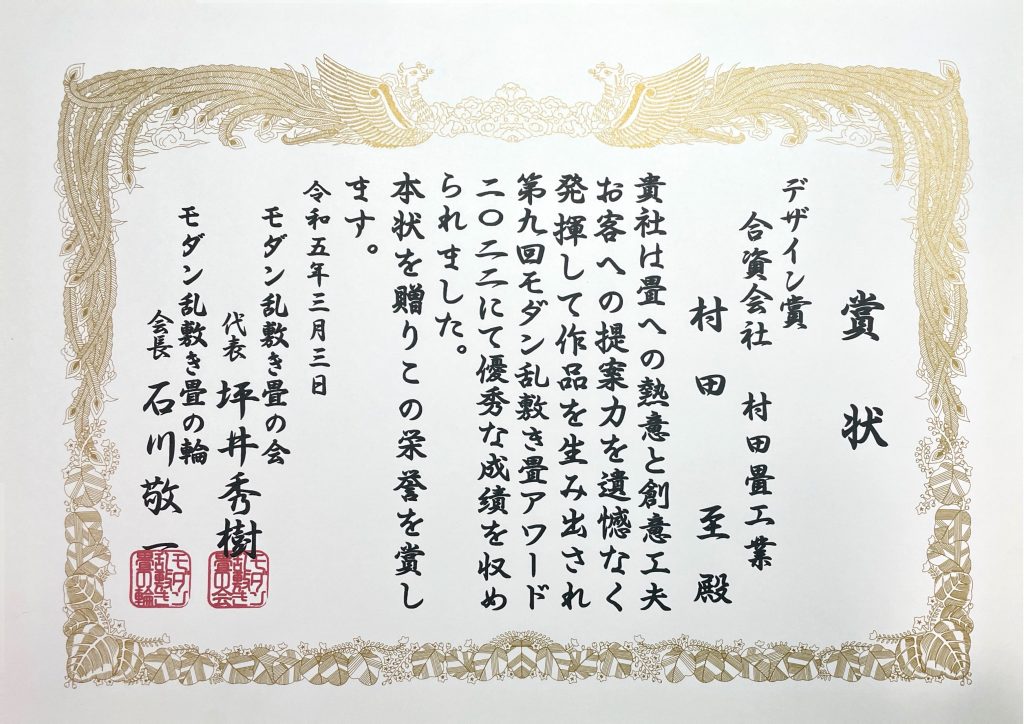 賞状
デザイン賞
合資会社 村田畳工業
村田 至 殿
貴社は畳への熱意と創意工夫
お客への提案力を遺憾なく
発揮して作品を生み出され
第九回モダン乱敷き畳アワード
二〇二二にて優秀な成績を収め
られました。
本状を贈りこの栄誉を賞し
ます。
令和五年三月三日
モダン乱敷き畳の会
代表 坪井秀樹
モダン乱敷き畳の会
モダン乱敷き畳の輪
会長 石川敬一
モダン乱敷き畳の輪